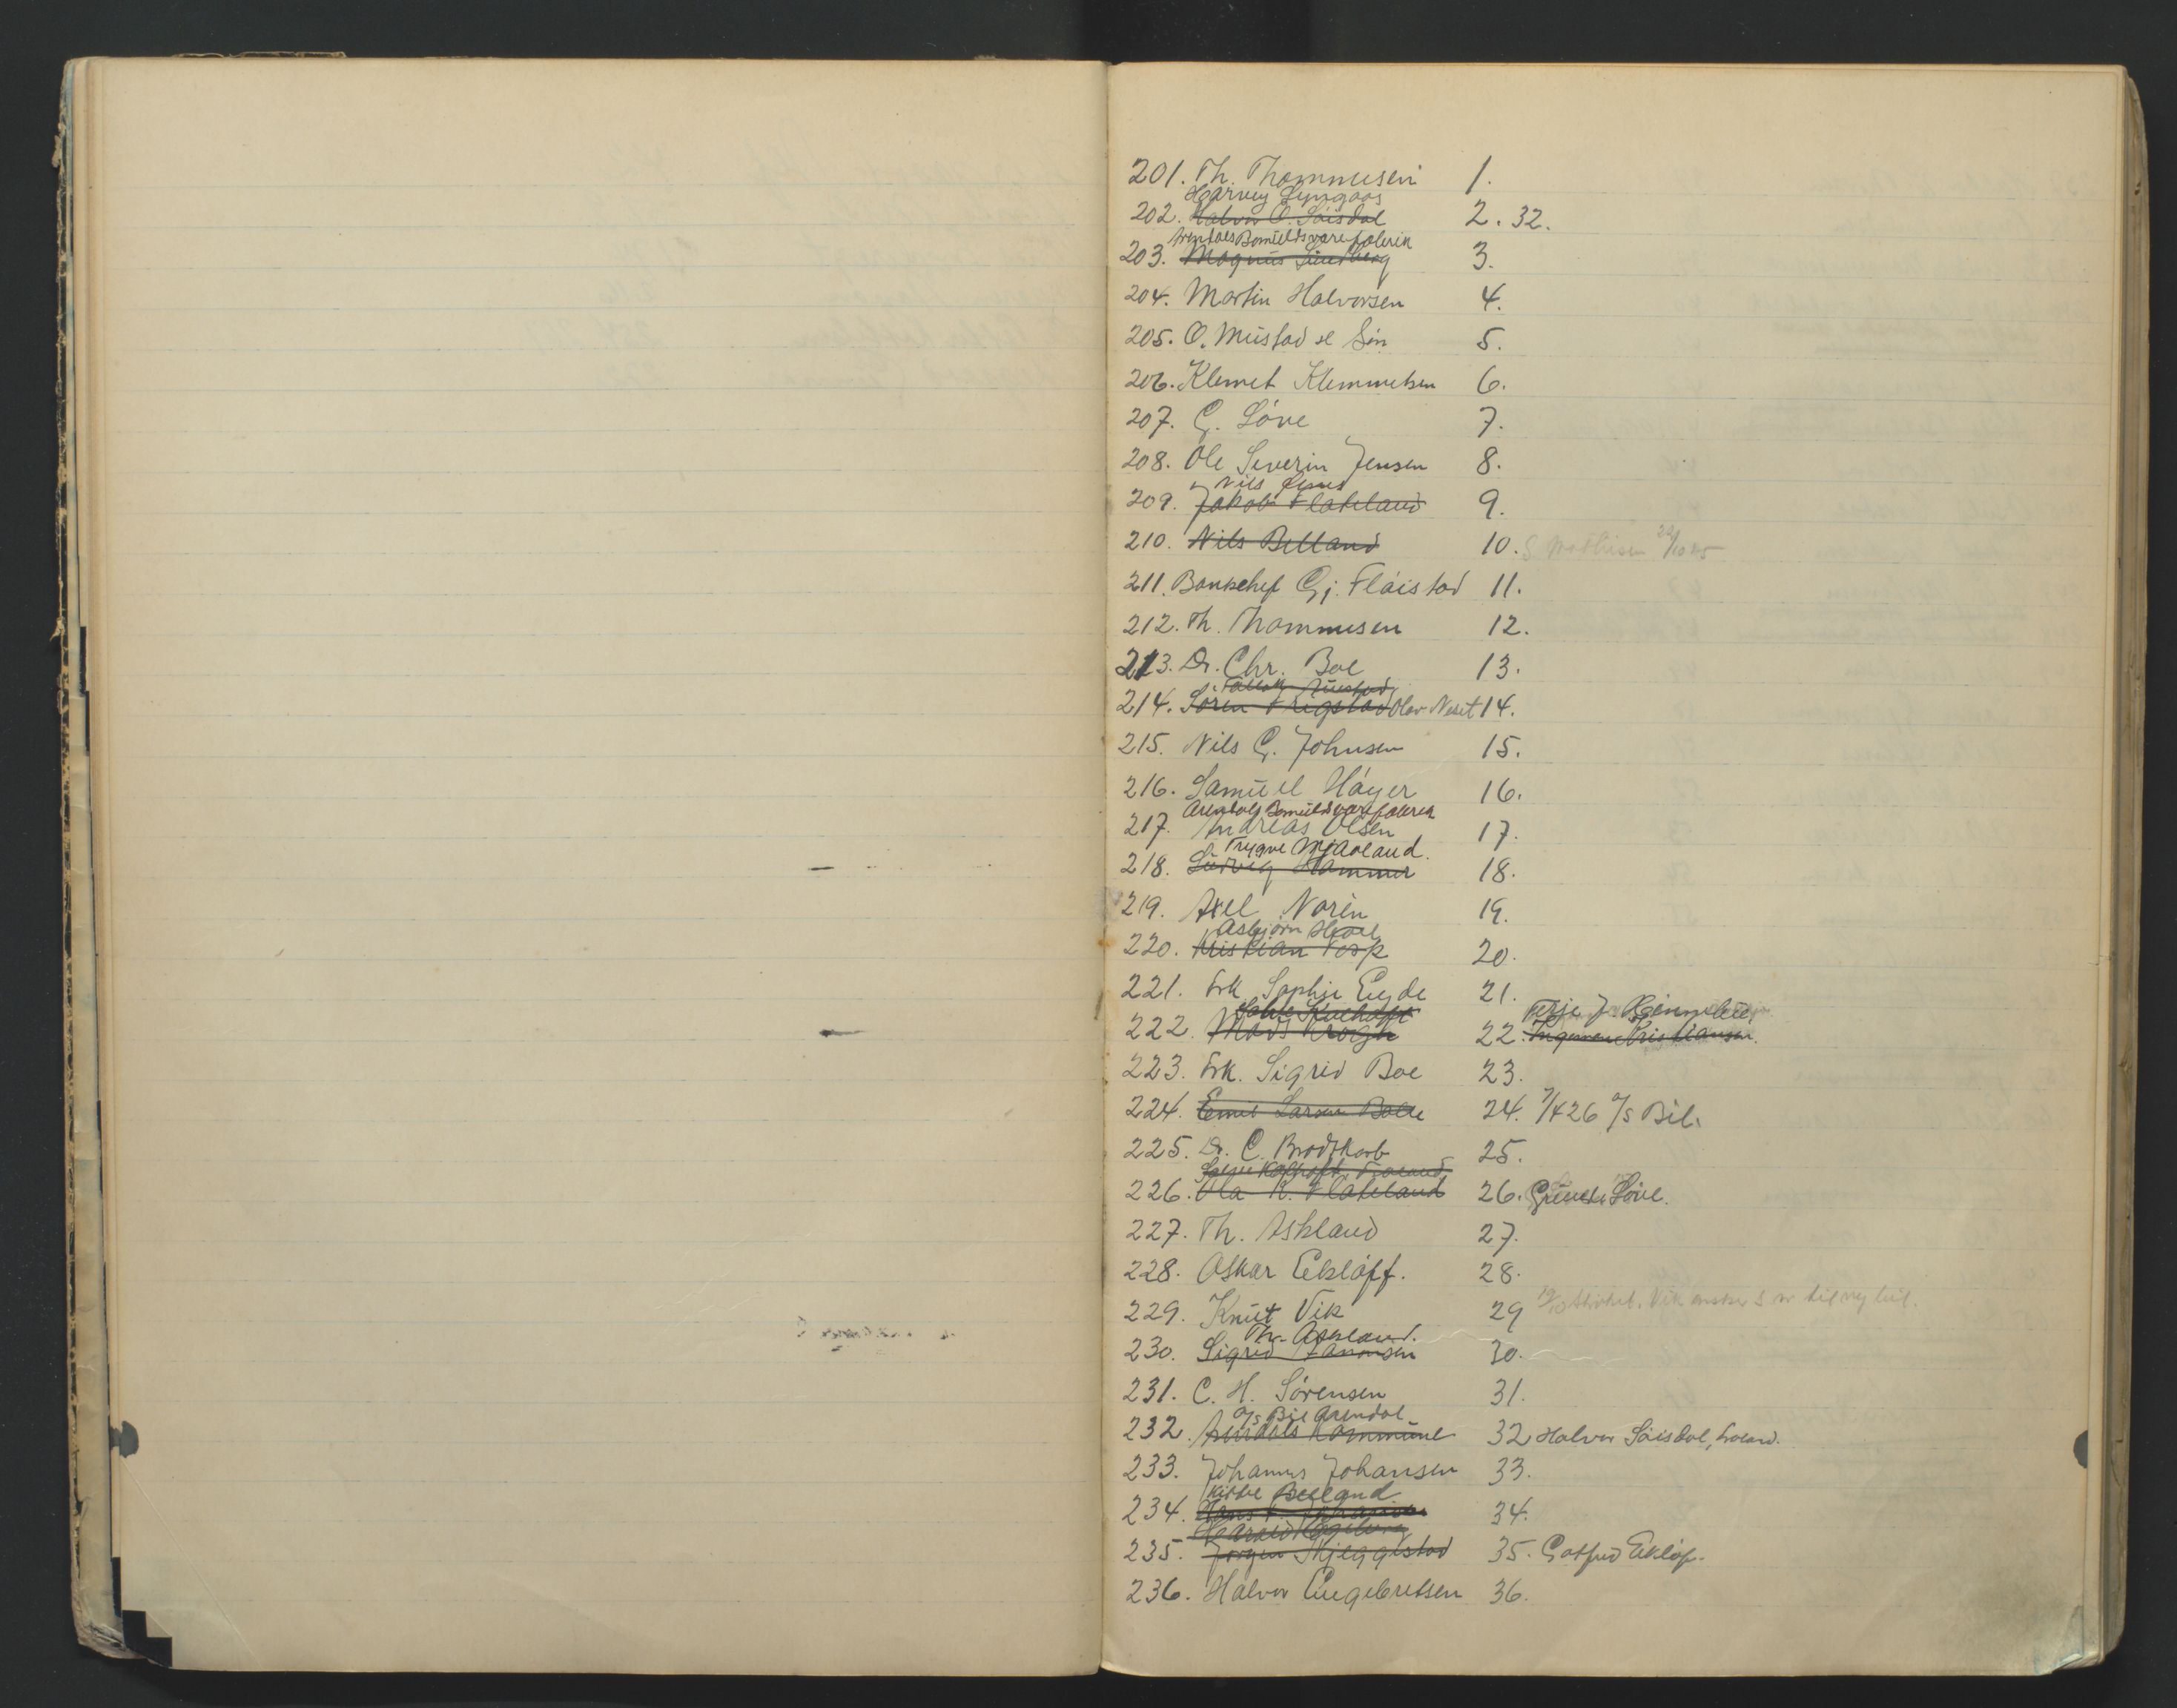 201. Th. Thommesen 1.
Harvey Lyngaas
202. Halvor O. Löisdal 2. 32.
Arendals Bomuldsvarefabrik
203. Magnus Lundberg 3.
204. Martin Halvorsen 4.
205. O. Mustad & Sön 5.
206. Klemet Klemmetsen 6.
207. G. Löve 7.
208. Ole Severin Jensen 8.
Nils
209. Jakob Flateland 9.
210. Nils Belland 10. G Mathisen
211. Bankschef Gj. Flöistad 11.
212. Th. Thommesen 12.
213. Dr. Chr. Boe 13.
214. Sören Vrigstad Olav Neset 14.
215. Nils G. Johnsen 15.
216. Samuel Höyer 16.
Arendals Bomuldsvarefabrik
217. Andreas Olsen 17.
Trygve Mjaaland.
218. Ludvig Hammer 18.
219. Axel Norèn 19.
Asbjörn
220. Kristian Tosp 20.
221. Frk Sophie Eyde 21.
Terje J.
222. Mads Krogh 22. Ingeman Kristiansen.
223. Frk. Sigrid Boe 23.
224. Emil Larsen Bolle 24. 7/4 26 A/S Bil.
225. Dr. C. Brodtkorb 25.
226. Ola K. Flateland 26. Löve.
227. Th. Askland 27.
228. Oskar Eklöff. 28.
229. Knut Vik 29 Vik ønsker s nr til ny bil.
Th. Askland.
230. Sigrid Aanonsen 30.
231. C. H. Sörensen 31.
A/S Bil Arendal
232. Arendals Kommune 32 Halvor Löisdal, Froland.
233. Johannes Johansen 33.
Belland
234. 34.
Harald
235. Jörgen Skjeggestad 35. Gotfred Eklöf.
236. Halvor Engebretsen 36.